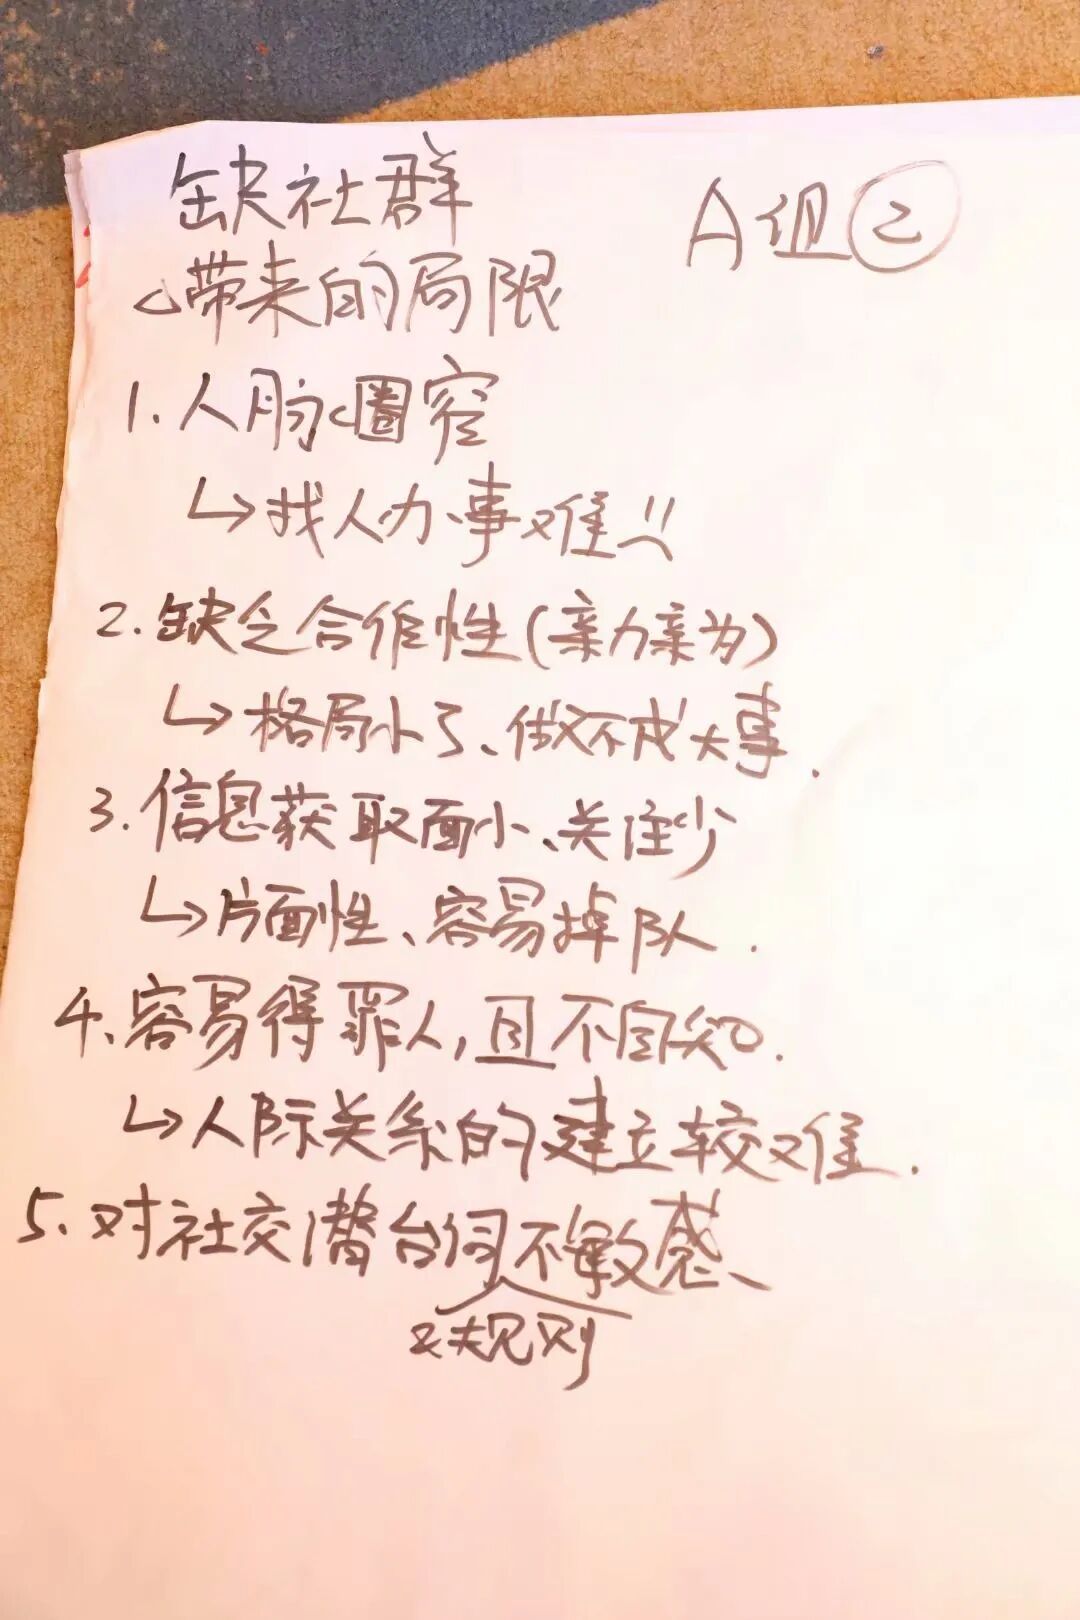 缺社群
A组②
带来的局限
1. 人脉圈窄
↳找人办事难!!
2. 缺乏合作性(亲力亲为)
↳格局小了、做不成大事.
3. 信息获取面小、关注少
↳片面性、容易掉队.
4. 容易得罪人,且不自知.
↳人际关系的建立较难.
5. 对社交潜台词不敏感、
&规则